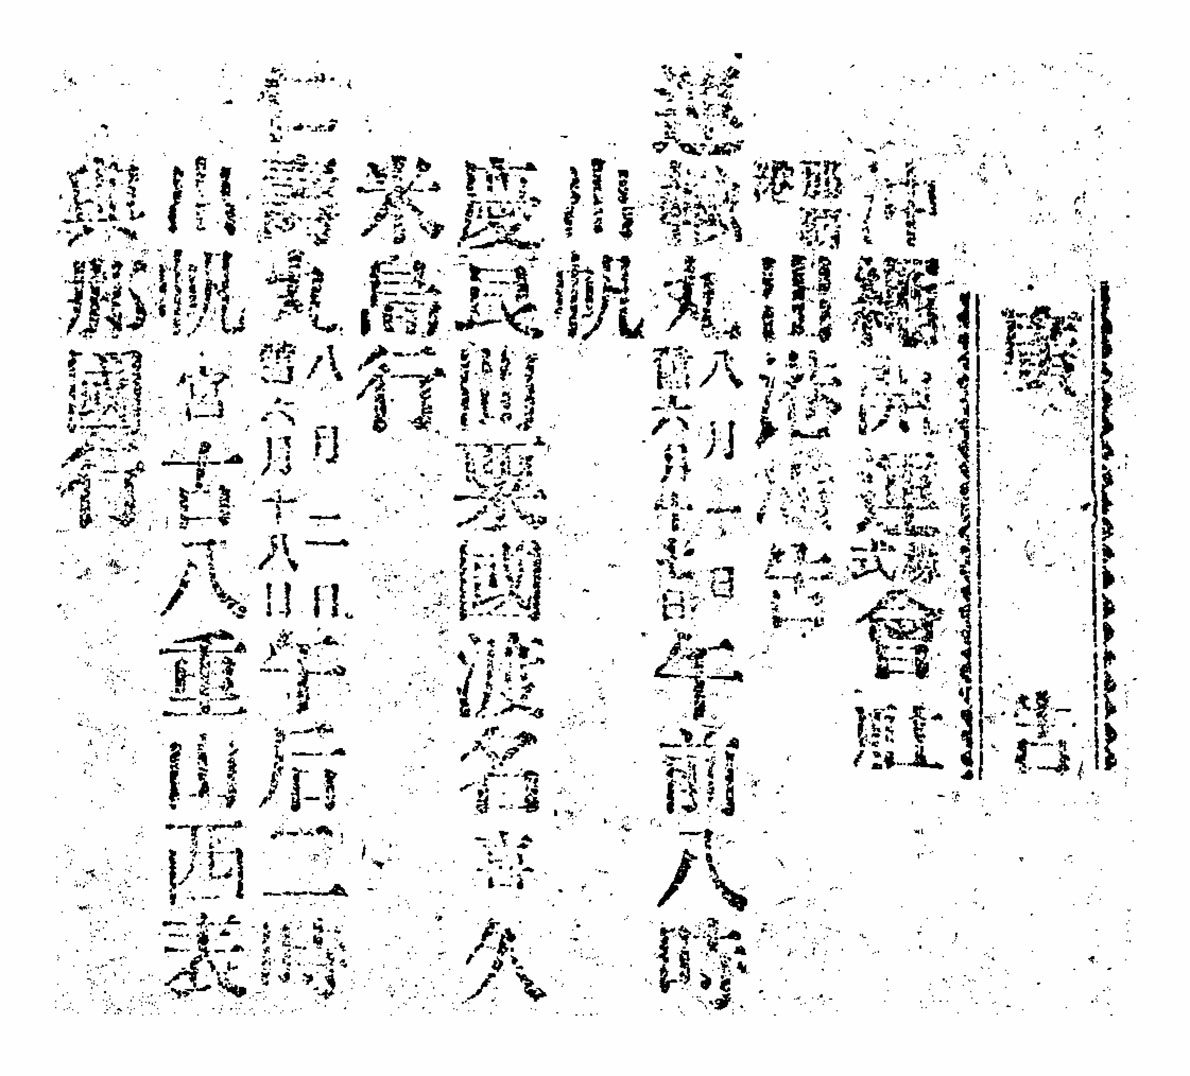 廣告
沖繩開運株式會社
港廣告
運輸丸八月一日舊六月十七日午前八時
出帆
慶良間粟國渡名喜久
米島行
仁壽丸八月二日舊六月十八日午后二時
出帆 宮古八重山西表
國行